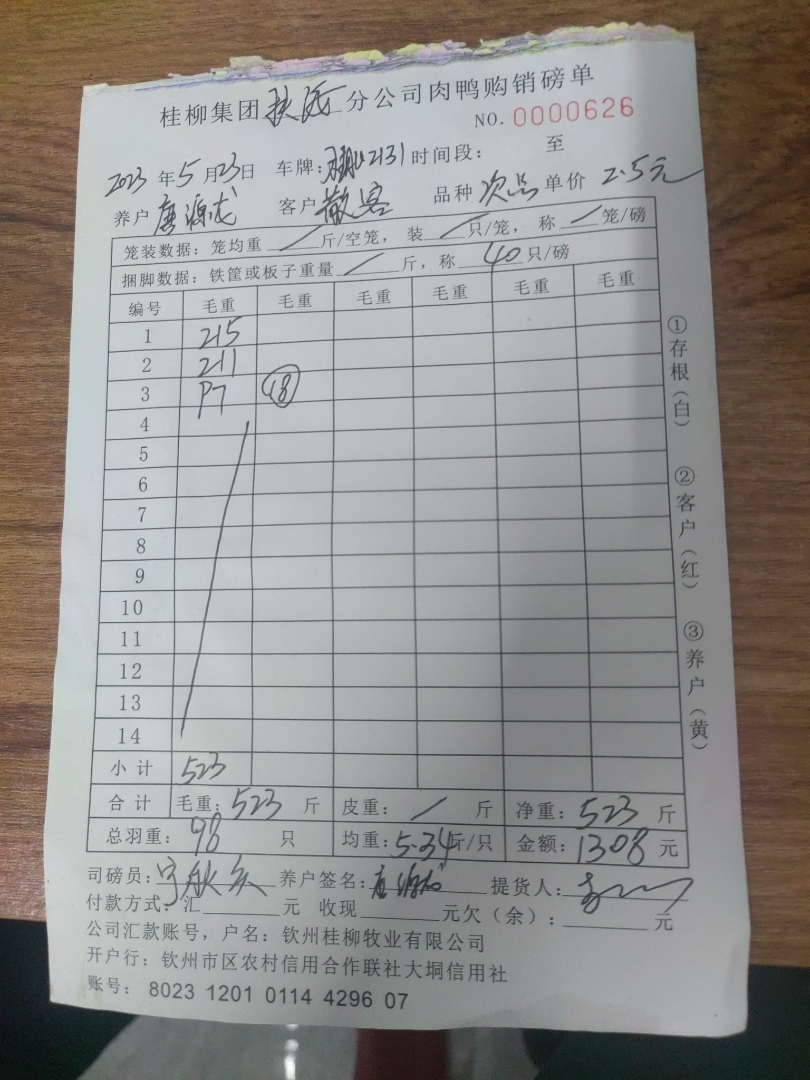 桂柳集团扶绥分公司肉鸭购销磅单
NO. 0000626
2023年5月23日 车牌: 2131 时间段: 至
养户 唐源龙 客户 散客 品种 次品 单价 2.5元
笼装数据: 笼均重 / 斤/空笼, 装 / 只/笼, 称 / 笼/磅
捆脚数据: 铁筐或板子重量 / 斤, 称 40 只/磅
编号 毛重 毛重 毛重 毛重 毛重 毛重
1 215
2 211
3 97 18
4
5
6
7
8
9
10
11
12
13
14
小计 523
合计 毛重: 523 斤 皮重: / 斤 净重: 523 斤
总羽重: 98 只 均重: 5.34斤/只 金额: 1308 元
司磅员: 养户签名: 唐源龙 提货人:
付款方式: 汇 元 收现 元欠(余): 元
公司汇款账号, 户名: 钦州桂柳牧业有限公司
开户行: 钦州市区农村信用合作联社大垌信用社
账号: 8023 1201 0114 4296 07
①存根(白)
②客户(红)
③养户(黄)